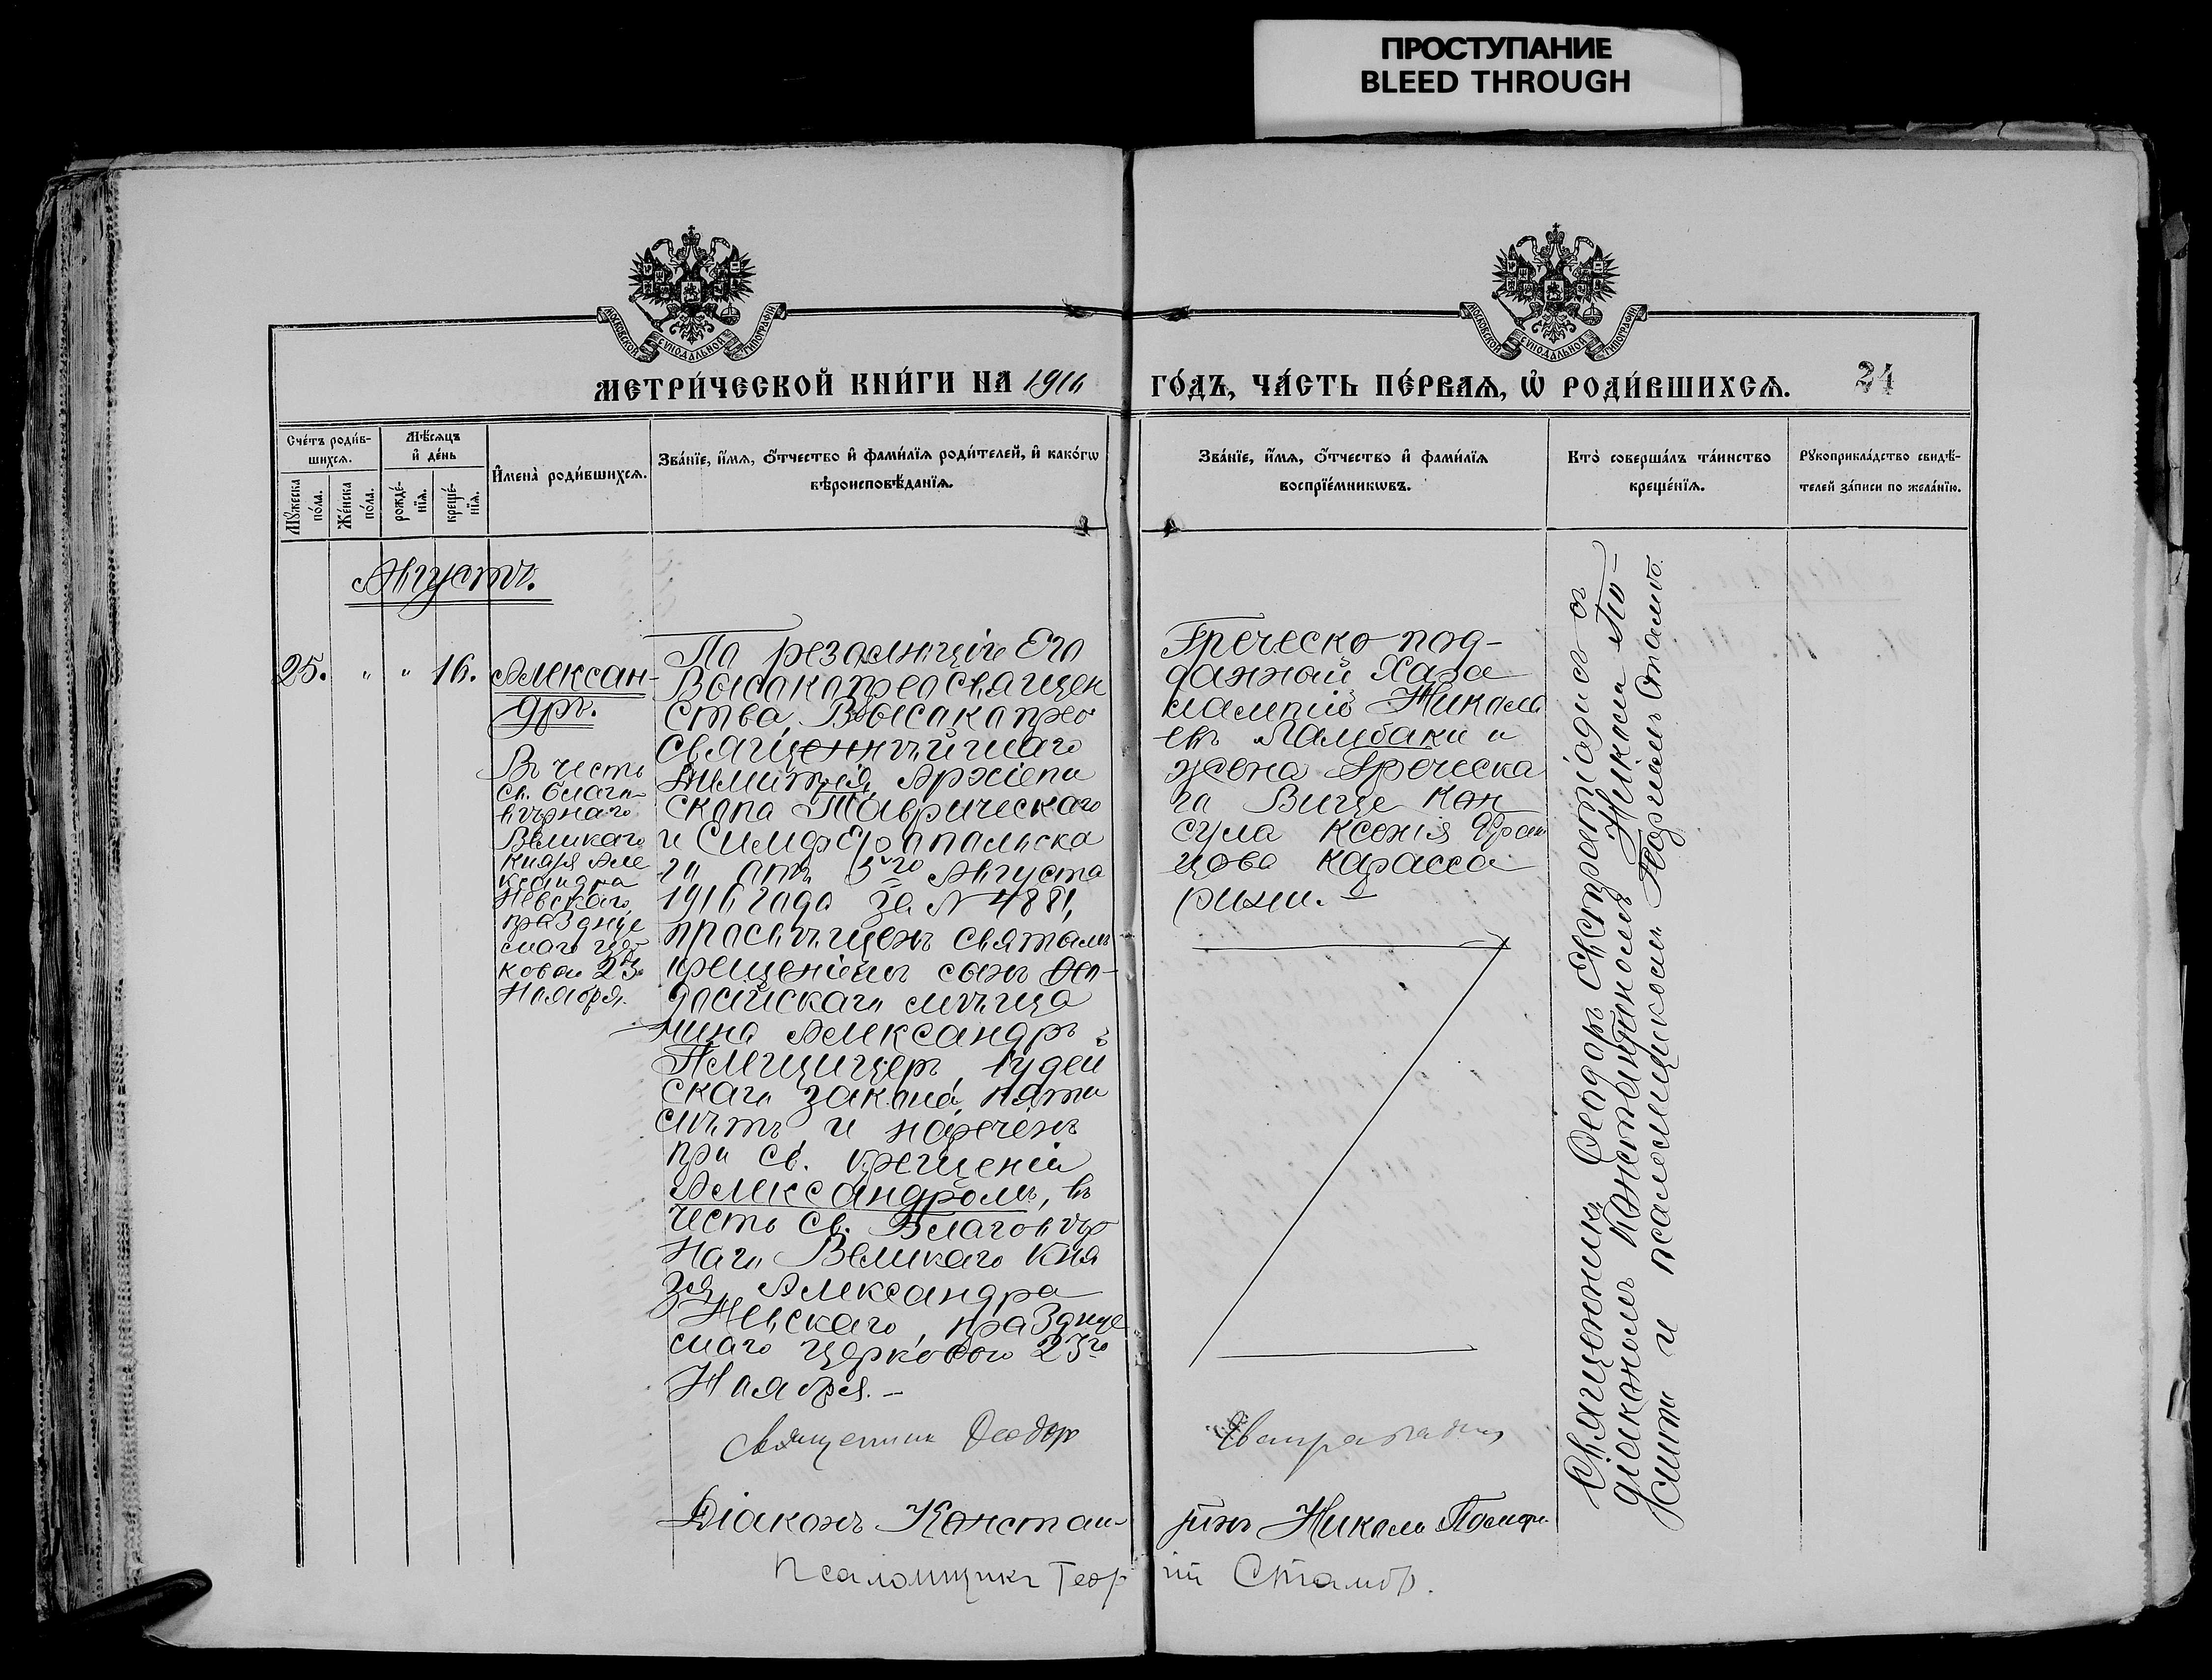 ПРОСТУПАНИЕ
BLEED THROUGH
МОСКОВСКОЙ СѴНОДАЛЬНОЙ ТИПОГРАФІИ
МОСКОВСКОЙ СѴНОДАЛЬНОЙ ТИПОГРАФІИ
МЕТРИ́ЧЕСКОЙ КНИ́ГИ НА 1916 ГО́ДЪ, ЧА́СТЬ ПЕ́РВАѦ, Ѡ҆ РОДИ́ВШИХСѦ.
21
Сче́тъ роди́в-
шихсѧ.
Мѣ́сѧцъ
и҆ де́нь
Мꙋ́жеска
по́ла.
Же́нска
по́ла.
рожде́-
нїѧ.
креще́-
нїѧ.
И҆мена̀ роди́вшихсѧ.
Зва́нїе, и҆́мѧ, ѻ҆́тчество и҆ фами́лїѧ роди́телей, и҆ како́гѡ
вѣроисповѣ́данїѧ.
Зва́нїе, и҆́мѧ, ѻ҆́тчество и҆ фами́лїѧ
воспрїе́мникѡвъ.
Кто̀ соверша́лъ та́инство
креще́нїѧ.
Рꙋкоприкла́дство свидѣ́-
телей за́писи по жела́нїю.
Августъ.
25. " " 16.
Алексан-
дръ.
Въ честь
св. благо-
вѣрнаго
Великаго
Князя Але
ксандра
Невскаго,
празднуе
маго цер
ковью 23го
Ноября.
По резолюціи Его
Высокопреосвящен
ства, Высокопрео
священнѣйшаго
Димитрія, Архіепи
скопа Таврическаго
и Симферопольска
го отъ 5го Августа
1916 года за № 4881,
просвѣщенъ святымъ
крещеніемъ сынъ Ѳео-
досійскаго мѣща
нина Александръ
іудей
скаго закона, пяти
лѣтъ и нареченъ
при св. крещеніи
Александромъ, въ
честь св. Благовѣр
наго Великаго Кня
зя, Александра
Невскаго, празднуе
маго церковью 23го
Ноября. –
Священникъ Ѳеодоръ
Діаконъ Констан-
тинъ Николи
Псаломщикъ Геор
гій Стамбо.
Греческо под-
данный Хара
лампій Николa
евъ Ламбаки и
жена Греческа
го Вице Кон
сула Ксенія Фран
цова Карасса
рини. –
Священникъ Ѳеодоръ Евстратіади съ
діакономъ Константиномъ Николи По-
и псаломщикомъ Георгіемъ Стамбо.